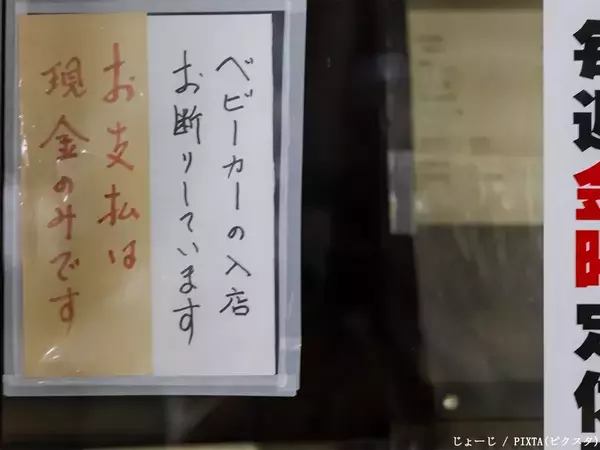 毎週金曜定休
ベビーカーの入店
お断りしています
お支払は
現金のみです
じょーじ / PIXTA(ピクスタ)